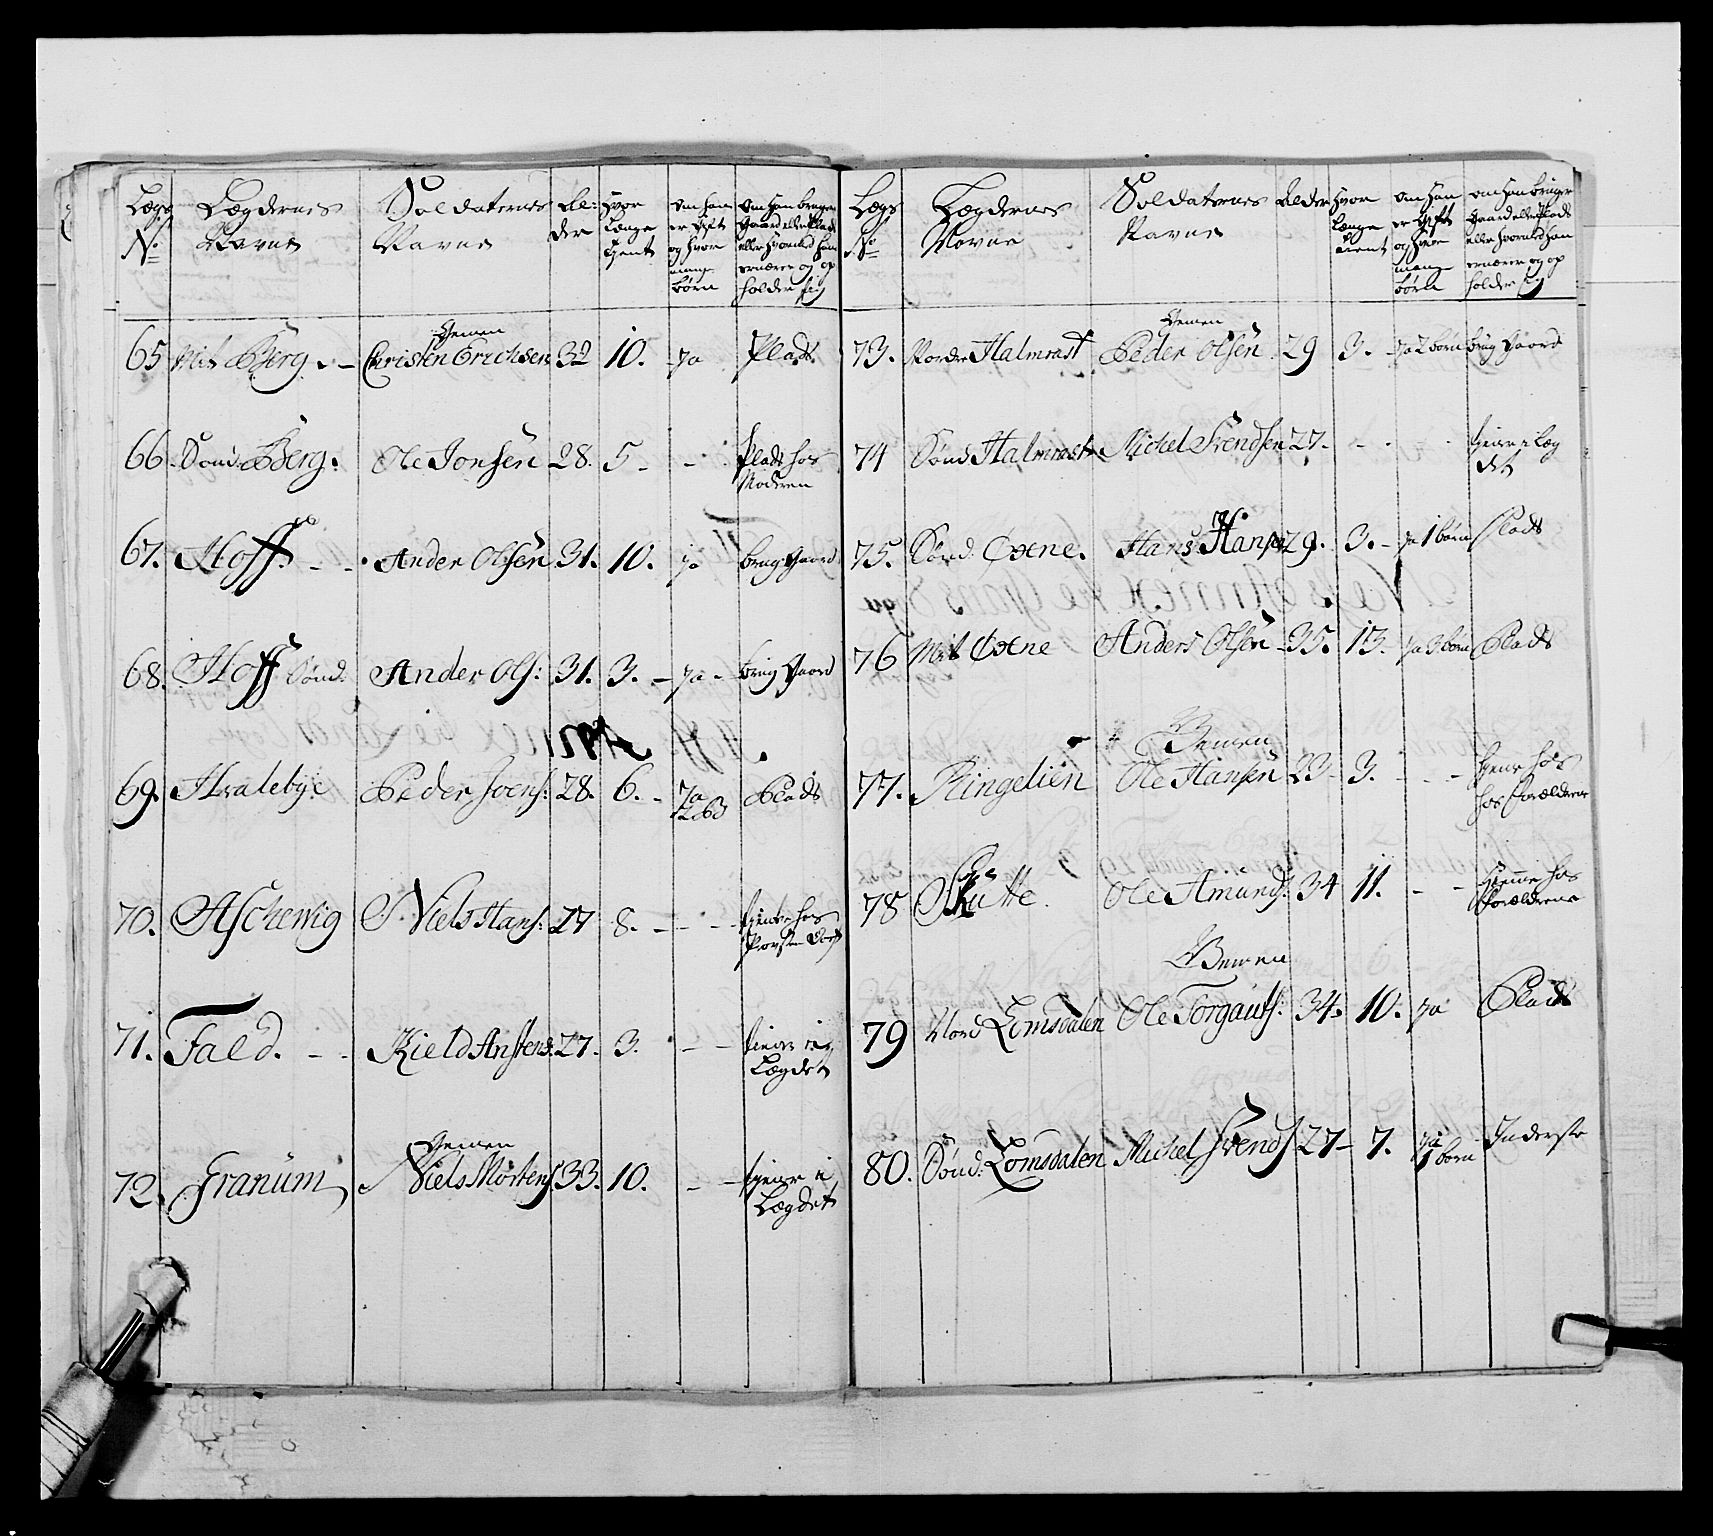 Lægs No
Lægdernes Navne
Soldaternes Navne
Al: der
Hvor Længe tient
om han er Gift og hvor mange børn
om han bruger Gaard eller Plads eller hvormed han ernærer og op holder sig
Gemen
65 Mit Berg. - Christen Erichsen 32 10. - ja Plads
66. Sønd: Berg. Ole Jonsen 28. 5 - - . Plads hos
Moderen
67. Hoff. - - Ander Olsen 31. 10. ja brug Gaard
68. Hoff Sønd: Ander Ols: 31. 3. - ja - brug Gaard
69. Hvalebye Peder Joens: 28. 6. - ja Plads
2 B
70. Aschewig Niels Hans: 27 8. - - - tienr hos
Provsten
71. Fald. - - Kield Anstens: 27. 3. - - tiener i
Lægdet
Gemen
72. Granum Niels Mortens: 33. 10. - - tiener i
Lægdet
Lægs No
Lægdernes Navne
Soldaternes Navne
Alder
Hvor længe tient
om han er Gift og hvor mange børn
om han bruger Gaard eller Plads eller hvormed han ernærer og op holder sig
Gemen
73. Nordre Halmrast Peder Olsen 29 3. - ja 2 børn brug Gaard
74 Sønd Halmrast Michel Svendsen 27. - - . tiener i Læg
det
75. Nord. Oxene. Hans Hansen 29. 3. - ja 1 børn Plads
76 Mit Oxene Anders Olsen 35. 13. ja 3 børn Plads
Gemen
77. Ringelien Ole Hansen 23 - 3. - - - hos
hos Forældrene
78 Skutte. Ole Amunds: 34 11. - - Hiemme hos
Forældrene
Gemen
79 Nord Lomsdalen Ole Torgauts: 34. 10. ja Plads
80. Sønd: Lomsdalen Michel Svends 27 - 7. ja Inderste
1 børn